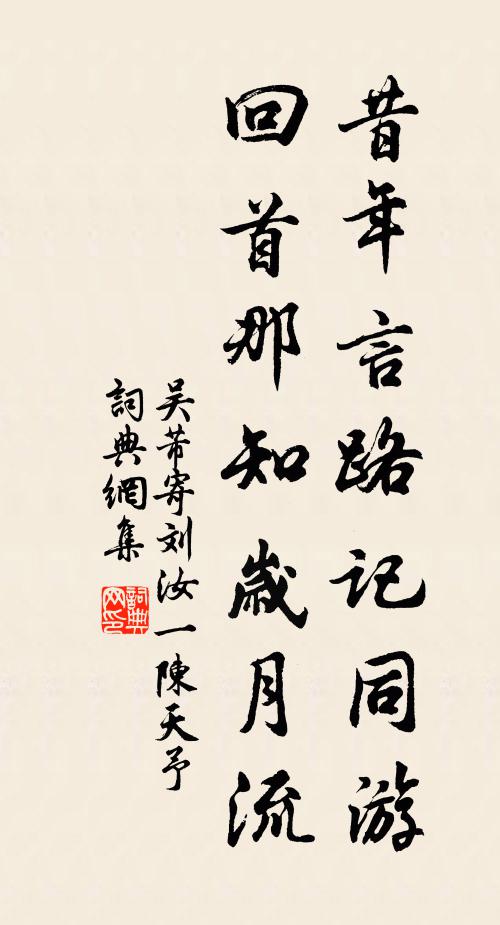 昔年言路记同游
回首那知歲月流
吴芾寄刘汝一陳天予
詞典網集
詞典网印